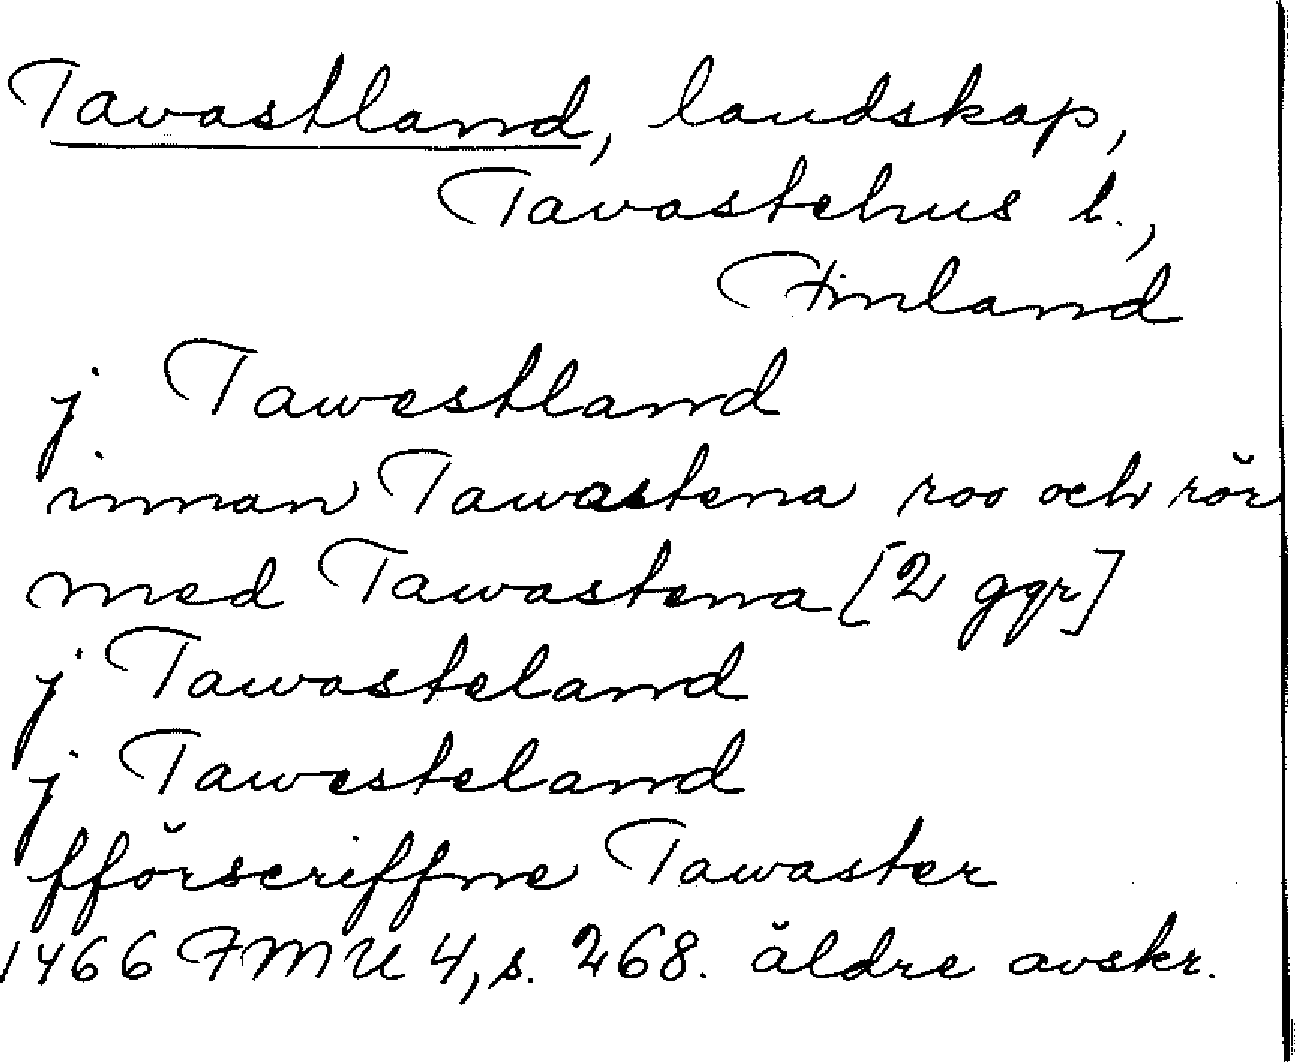 Tavastland, landskap,
Tavastehus l.,
Finland
j Tawestland
inman Tawastena roo och rör
med Tawastena [2 ggr]
j Tawasteland
j Tawesteland
fförscriffne Tawaster
1466 FMU 4, s. 268. äldre avskr.